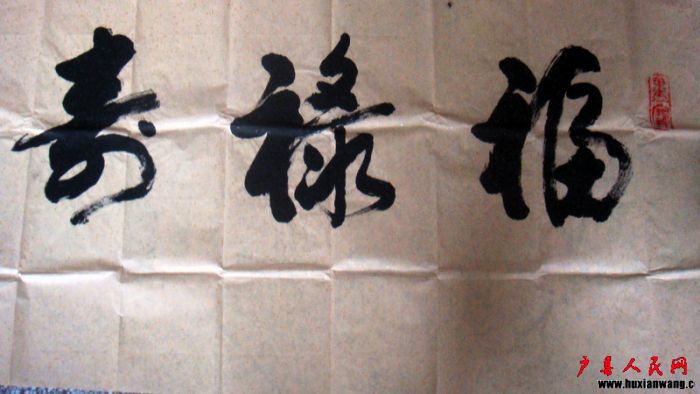 福禄寿
户县人民网
www.huxianwang.c